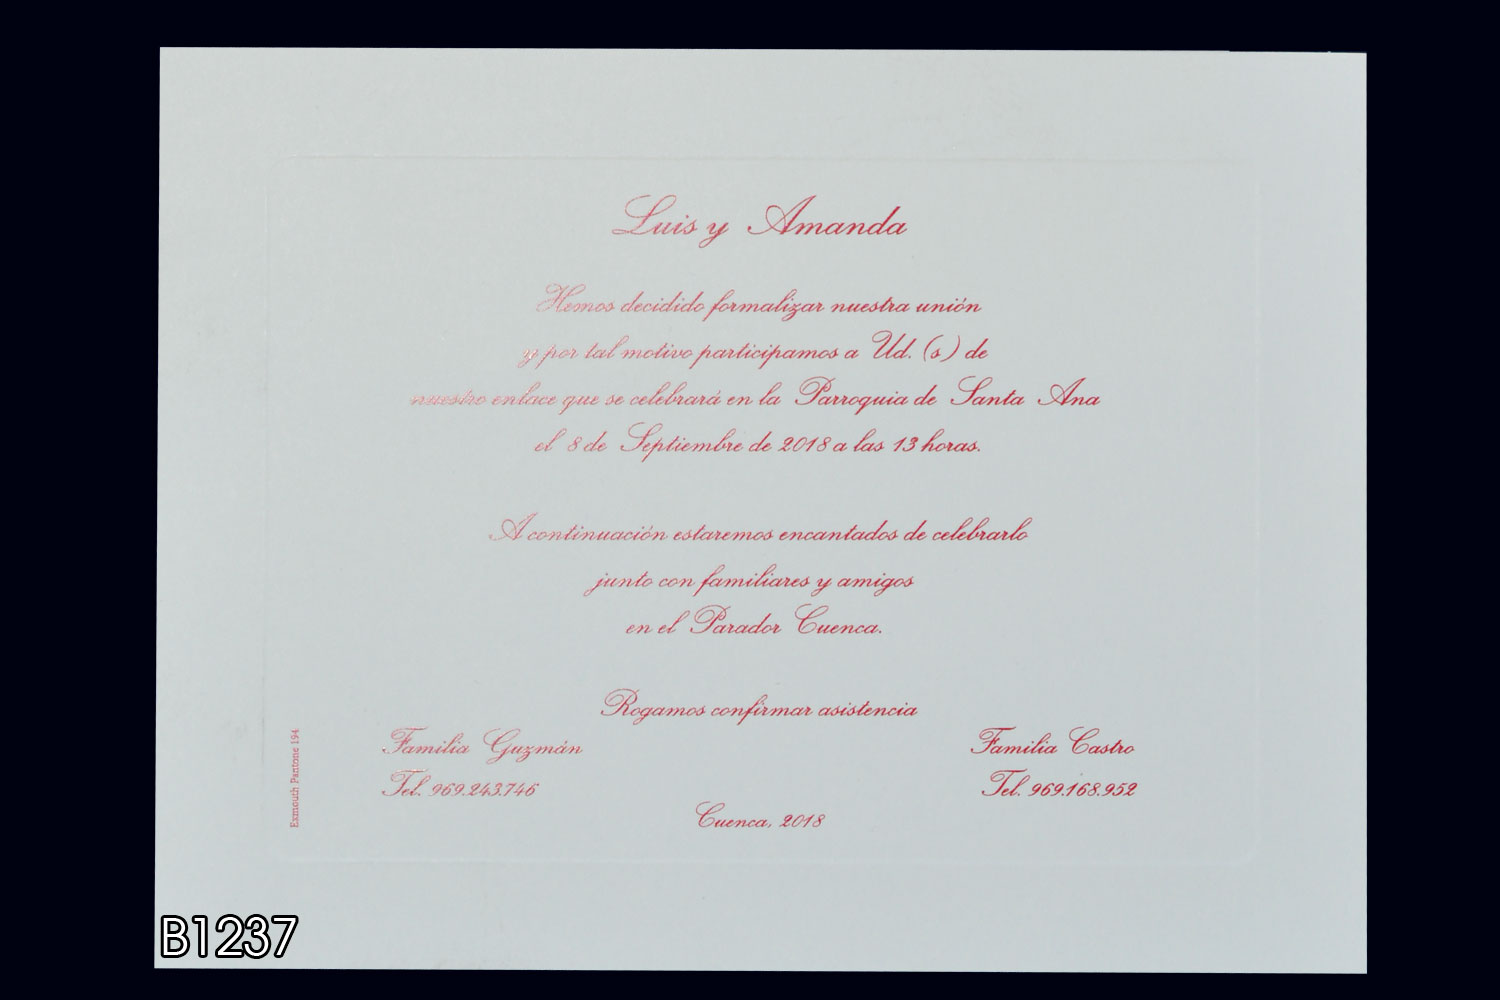 Luis y Amanda
Hemos decidido formalizar nuestra unión
y por tal motivo participamos a Ud. (s) de
nuestro enlace que se celebrará en la Parroquia de Santa Ana
el 8 de Septiembre de 2018 a las 13 horas.
A continuación estaremos encantados de celebrarlo
junto con familiares y amigos
en el Parador Cuenca.
Rogamos confirmar asistencia
Familia Guzmán
Tel. 969.243.746
Familia Castro
Tel. 969.168.952
Cuenca, 2018
Exmouth Pantone 194
B1237